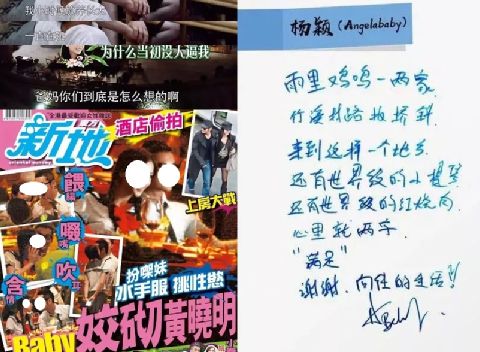 为什么当初没人逼我
爸妈你们到底是怎么想的啊
新地
酒店偷拍
上房大戰
餵
嘴
吹耳
含情
扮喫妹
水手服 挑性慾
Baby
姣砌黃曉明
杨颖 (Angelababy)
雨里鸡鸣一两家
竹溪村路板桥斜
来到这样一个地方
还有世界级的小提琴
还有世界级的红烧肉
心里就两字
"满足"
谢谢、向往的生活!!